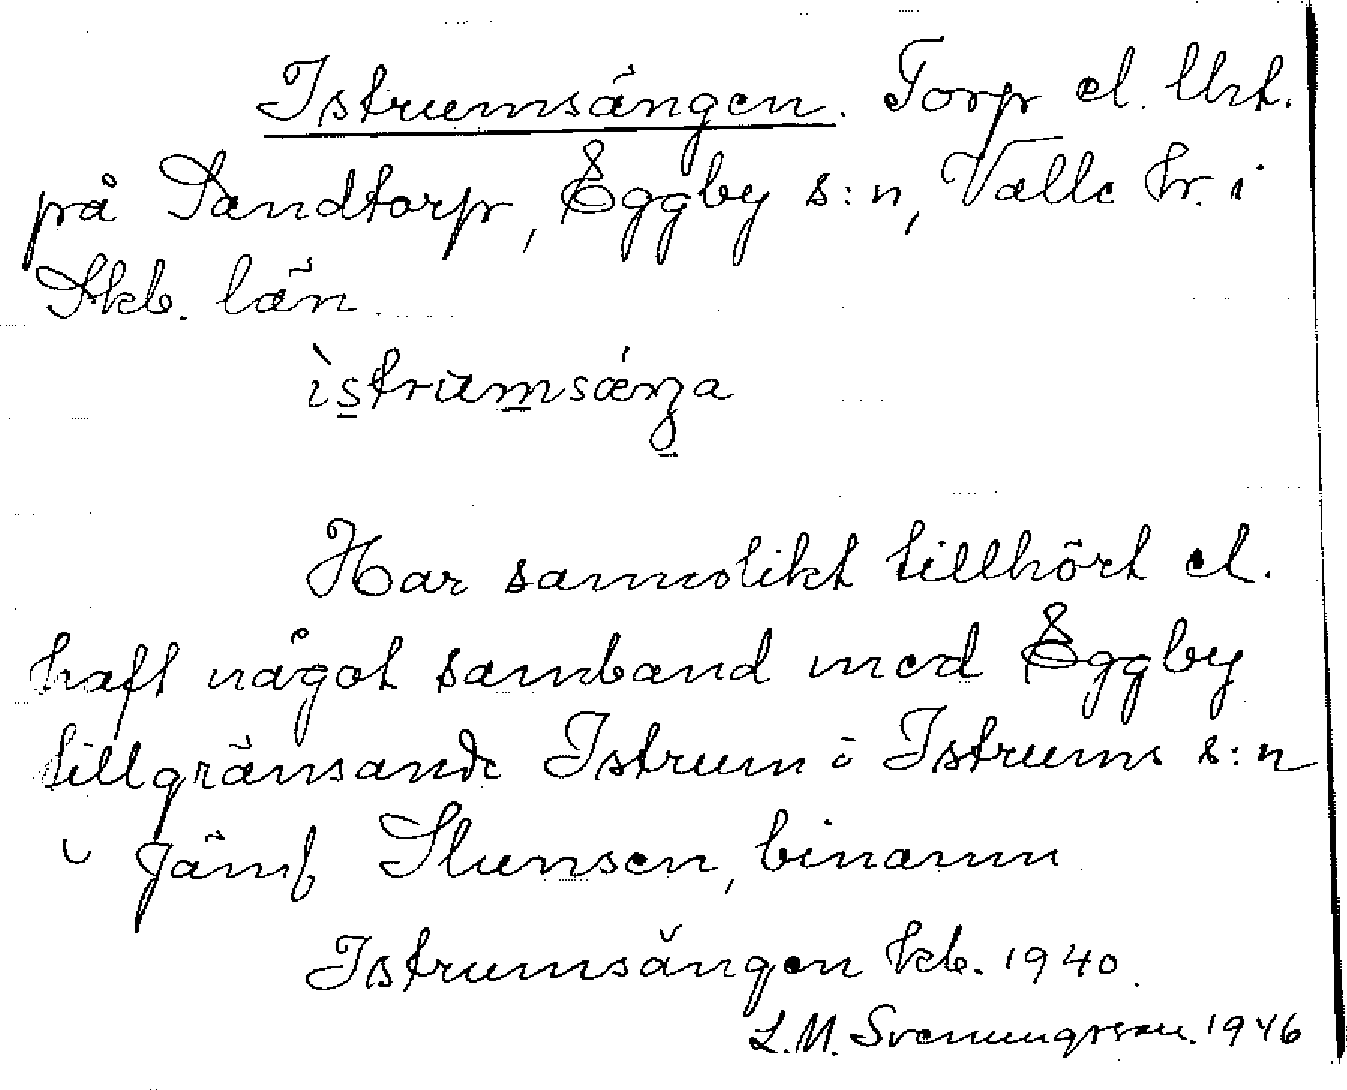 Istrumsängen. Torp el. lht.
på Sandtorp, Eggby s:n, Valle hr. i
Skb. län
ìstrumsáŋa
Har sannolikt tillhört el.
haft något samband med Eggby
tillgränsande Istrum i Istrums s:n
Jämf Slunsen, binamn
Istrumsängen kb. 1940.
L.M. Svenungsson. 1946